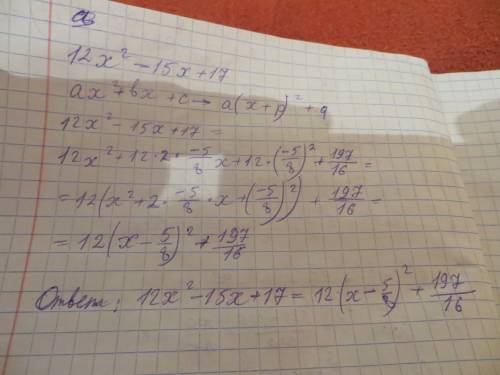 a
12x² - 15x + 17
ax² + bx + c → a(x + p)² + q
12x² - 15x + 17 =
12x² + 12 · 2 · -5/8 x + 12 · (-5/8)² + 197/16 =
= 12(x² + 2 · -5/8 · x + (-5/8)²) + 197/16 =
= 12(x - 5/8)² + 197/16
Ответ: 12x² - 15x + 17 = 12(x - 5/8)² + 197/16